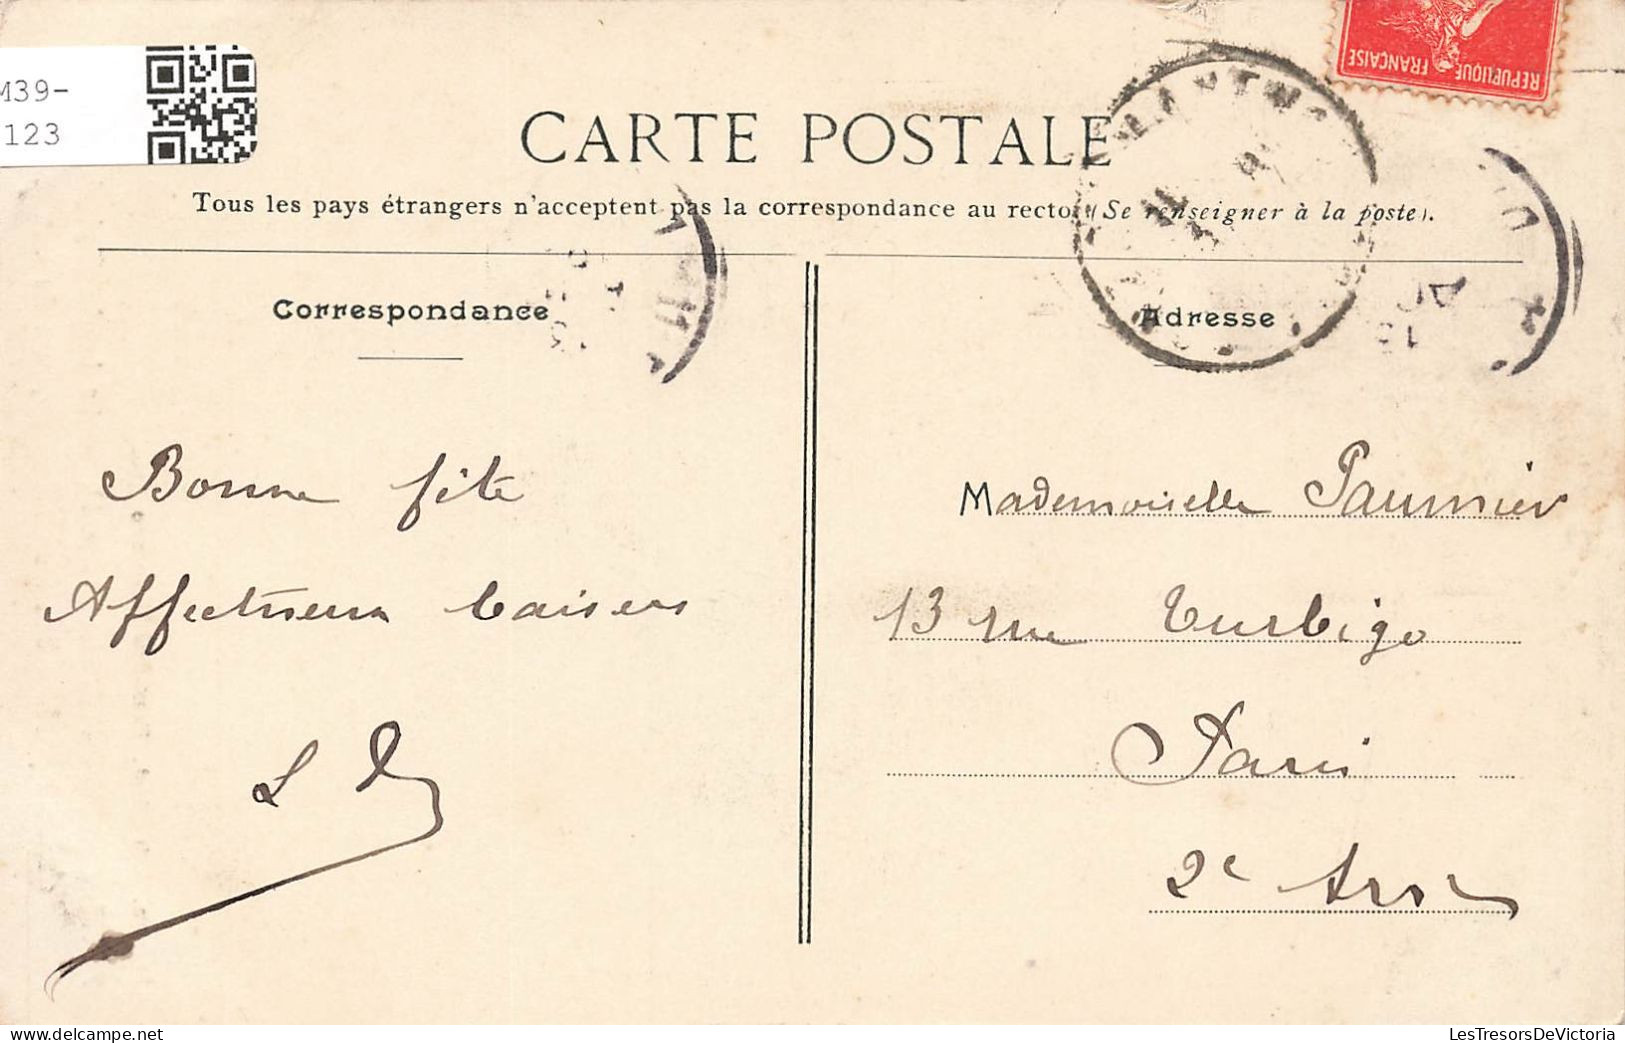 M39-
123
REPUBLIQUE FRANÇAISE
CARTE POSTALE
Tous les pays étrangers n'acceptent pas la correspondance au recto (Se renseigner à la poste).
Correspondance
Bonne fête
Affectueux baisers
Adresse
Mademoiselle Paumier
13 rue Turbigo
Paris
2e Arrt
LesTresorsDeVictoria